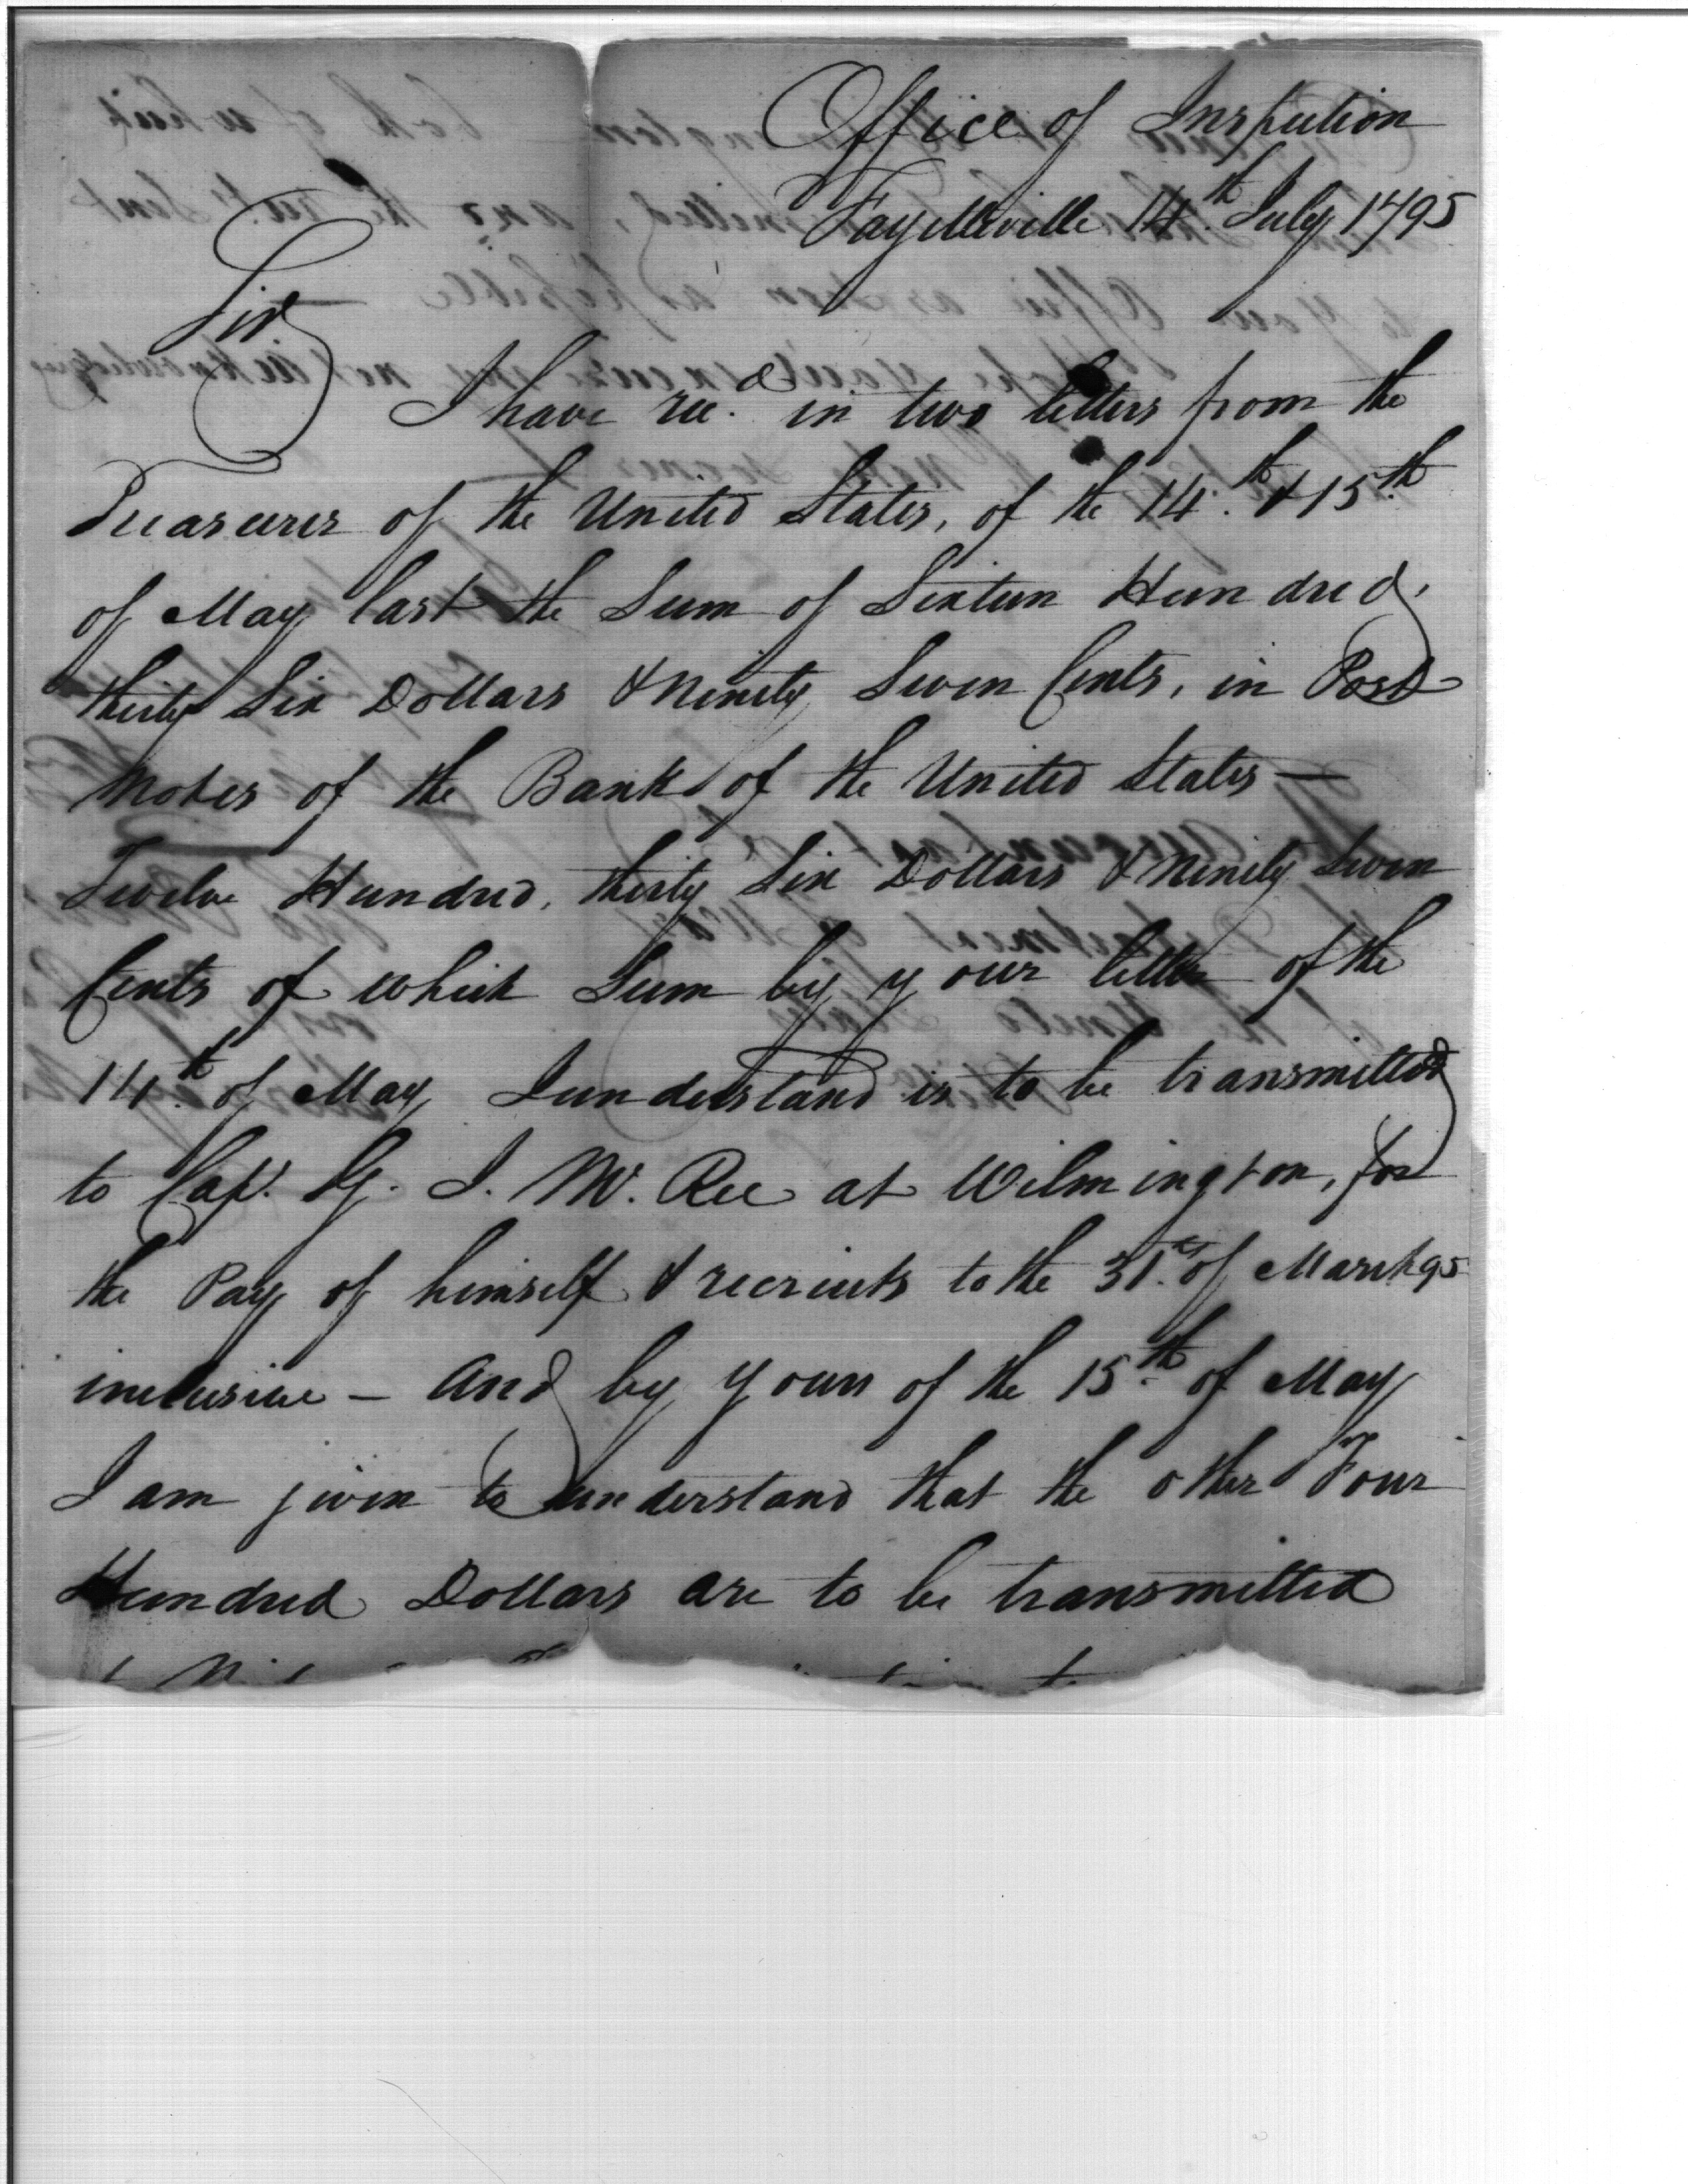 Office of Inspection
Fayetteville 14th July 1795
Sir
I have recd. in two letters from the
Treasurer of the United States, of the 14th & 15th
of May last the Sum of Sixteen Hundred,
thirty Six Dollars & Ninety Seven Cents, in Post
Notes of the Bank of the United States —
Twelve Hundred, thirty Six Dollars & Ninety Seven
Cents of which Sum by your letter of the
14th of May I understand is to be transmitted
to Cap. G. J. Mc. Ree at Wilmington, for
the Pay of himself & recruits to the 31st of March 95
inclusive — And by yours of the 15th of May
I am given to understand that the other Four
Hundred Dollars are to be transmitted